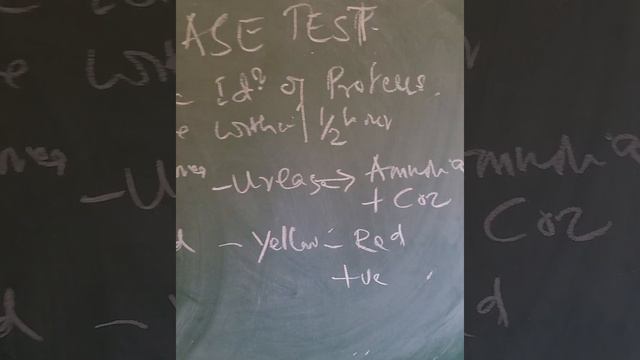 ASE TEST
Id? of Proteus.
within 1/2 hour
- Urease → Ammonia
+ CO2
d - Yellow - Red
+ve